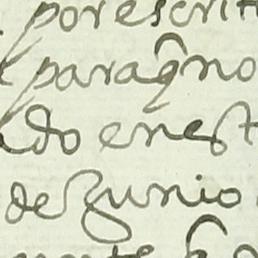 por escrit
para q̃ no
do en est
de Junio